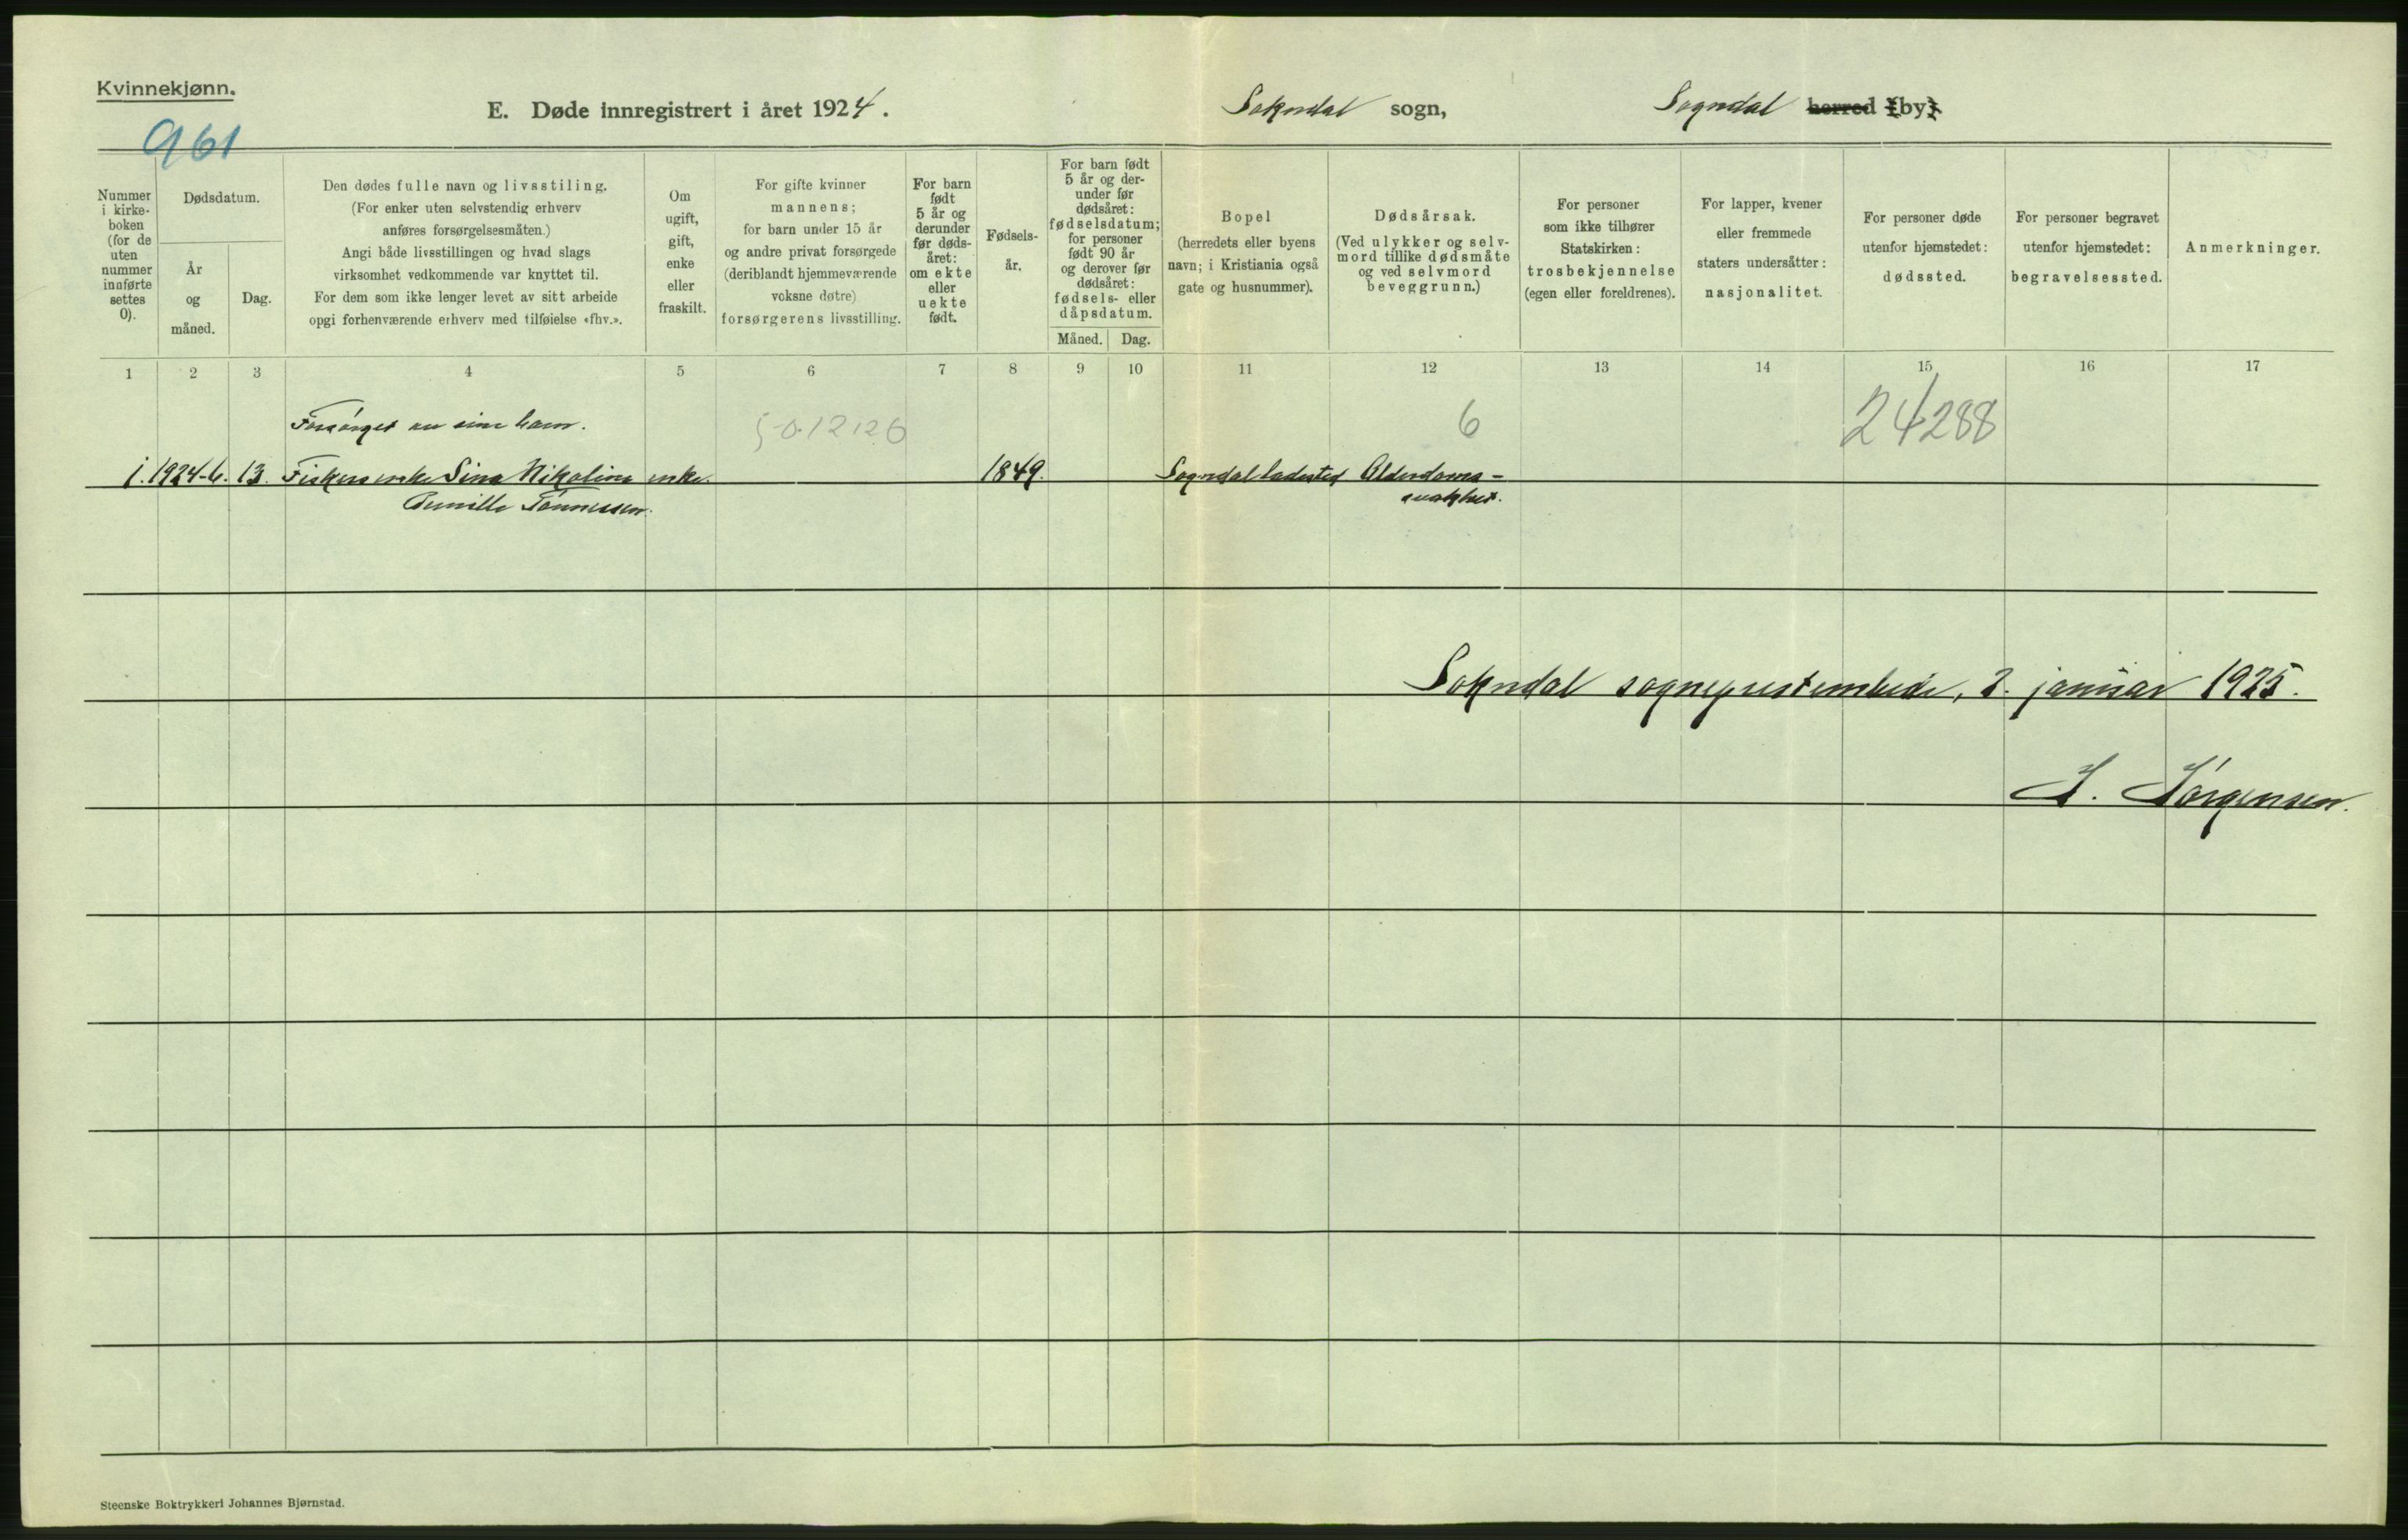 Kvinnekjønn.
961
E. Døde innregistrert i året 1924.
Sokndal sogn,
Sogndal herred (by)
Nummer
i kirke-
boken
(for de
uten
nummer
innførte
settes
0).
Dødsdatum.
År
og
måned.
Dag.
Den dødes fulle navn og livsstiling.
(For enker uten selvstendig erhverv
anføres forsørgelsesmåten.)
Angi både livsstillingen og hvad slags
virksomhet vedkommende var knyttet til.
For dem som ikke lenger levet av sitt arbeide
opgi forhenværende erhverv med tilføielse «fhv.».
Om
ugift,
gift,
enke
eller
fraskilt.
For gifte kvinner
mannens;
for barn under 15 år
og andre privat forsørgede
(deriblandt hjemmeværende
voksne døtre)
forsørgerens livsstilling.
For barn
født
5 år og
derunder
før døds-
året:
om ekte
eller
uekte
født.
Fødsels-
år.
For barn født
5 år og der-
under før
dødsåret:
fødselsdatum;
for personer
født 90 år
og derover før
dødsåret:
fødsels- eller
dåpsdatum.
Måned. Dag.
Bopel
(herredets eller byens
navn; i Kristiania også
gate og husnummer).
Dødsårsak.
(Ved ulykker og selv-
mord tillike dødsmåte
og ved selvmord
beveggrunn.)
For personer
som ikke tilhører
Statskirken:
trosbekjennelse
(egen eller foreldrenes).
For lapper, kvener
eller fremmede
staters undersåtter:
nasjonalitet.
For personer døde
utenfor hjemstedet:
dødssted.
For personer begravet
utenfor hjemstedet:
begravelsessted.
Anmerkninger.
1 2 3 4 5 6 7 8 9 10 11 12 13 14 15 16 17
Forsørget av sine barn. 6 24288
1. 1924-6. 13. Fiskers enke Sina Nikoline enke. 1849. Sogndal ladested Alderdoms-
Pernille Tønnessen. svakhet.
Sokndal sogneprestembede, 2. januar 1925.
J. Jørgensen.
Steenske Boktrykkeri Johannes Bjørnstad.